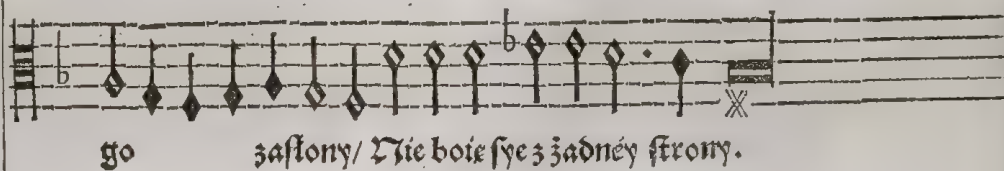 go zasłony/ Nie boię ſye z żadnéy ſtrony.